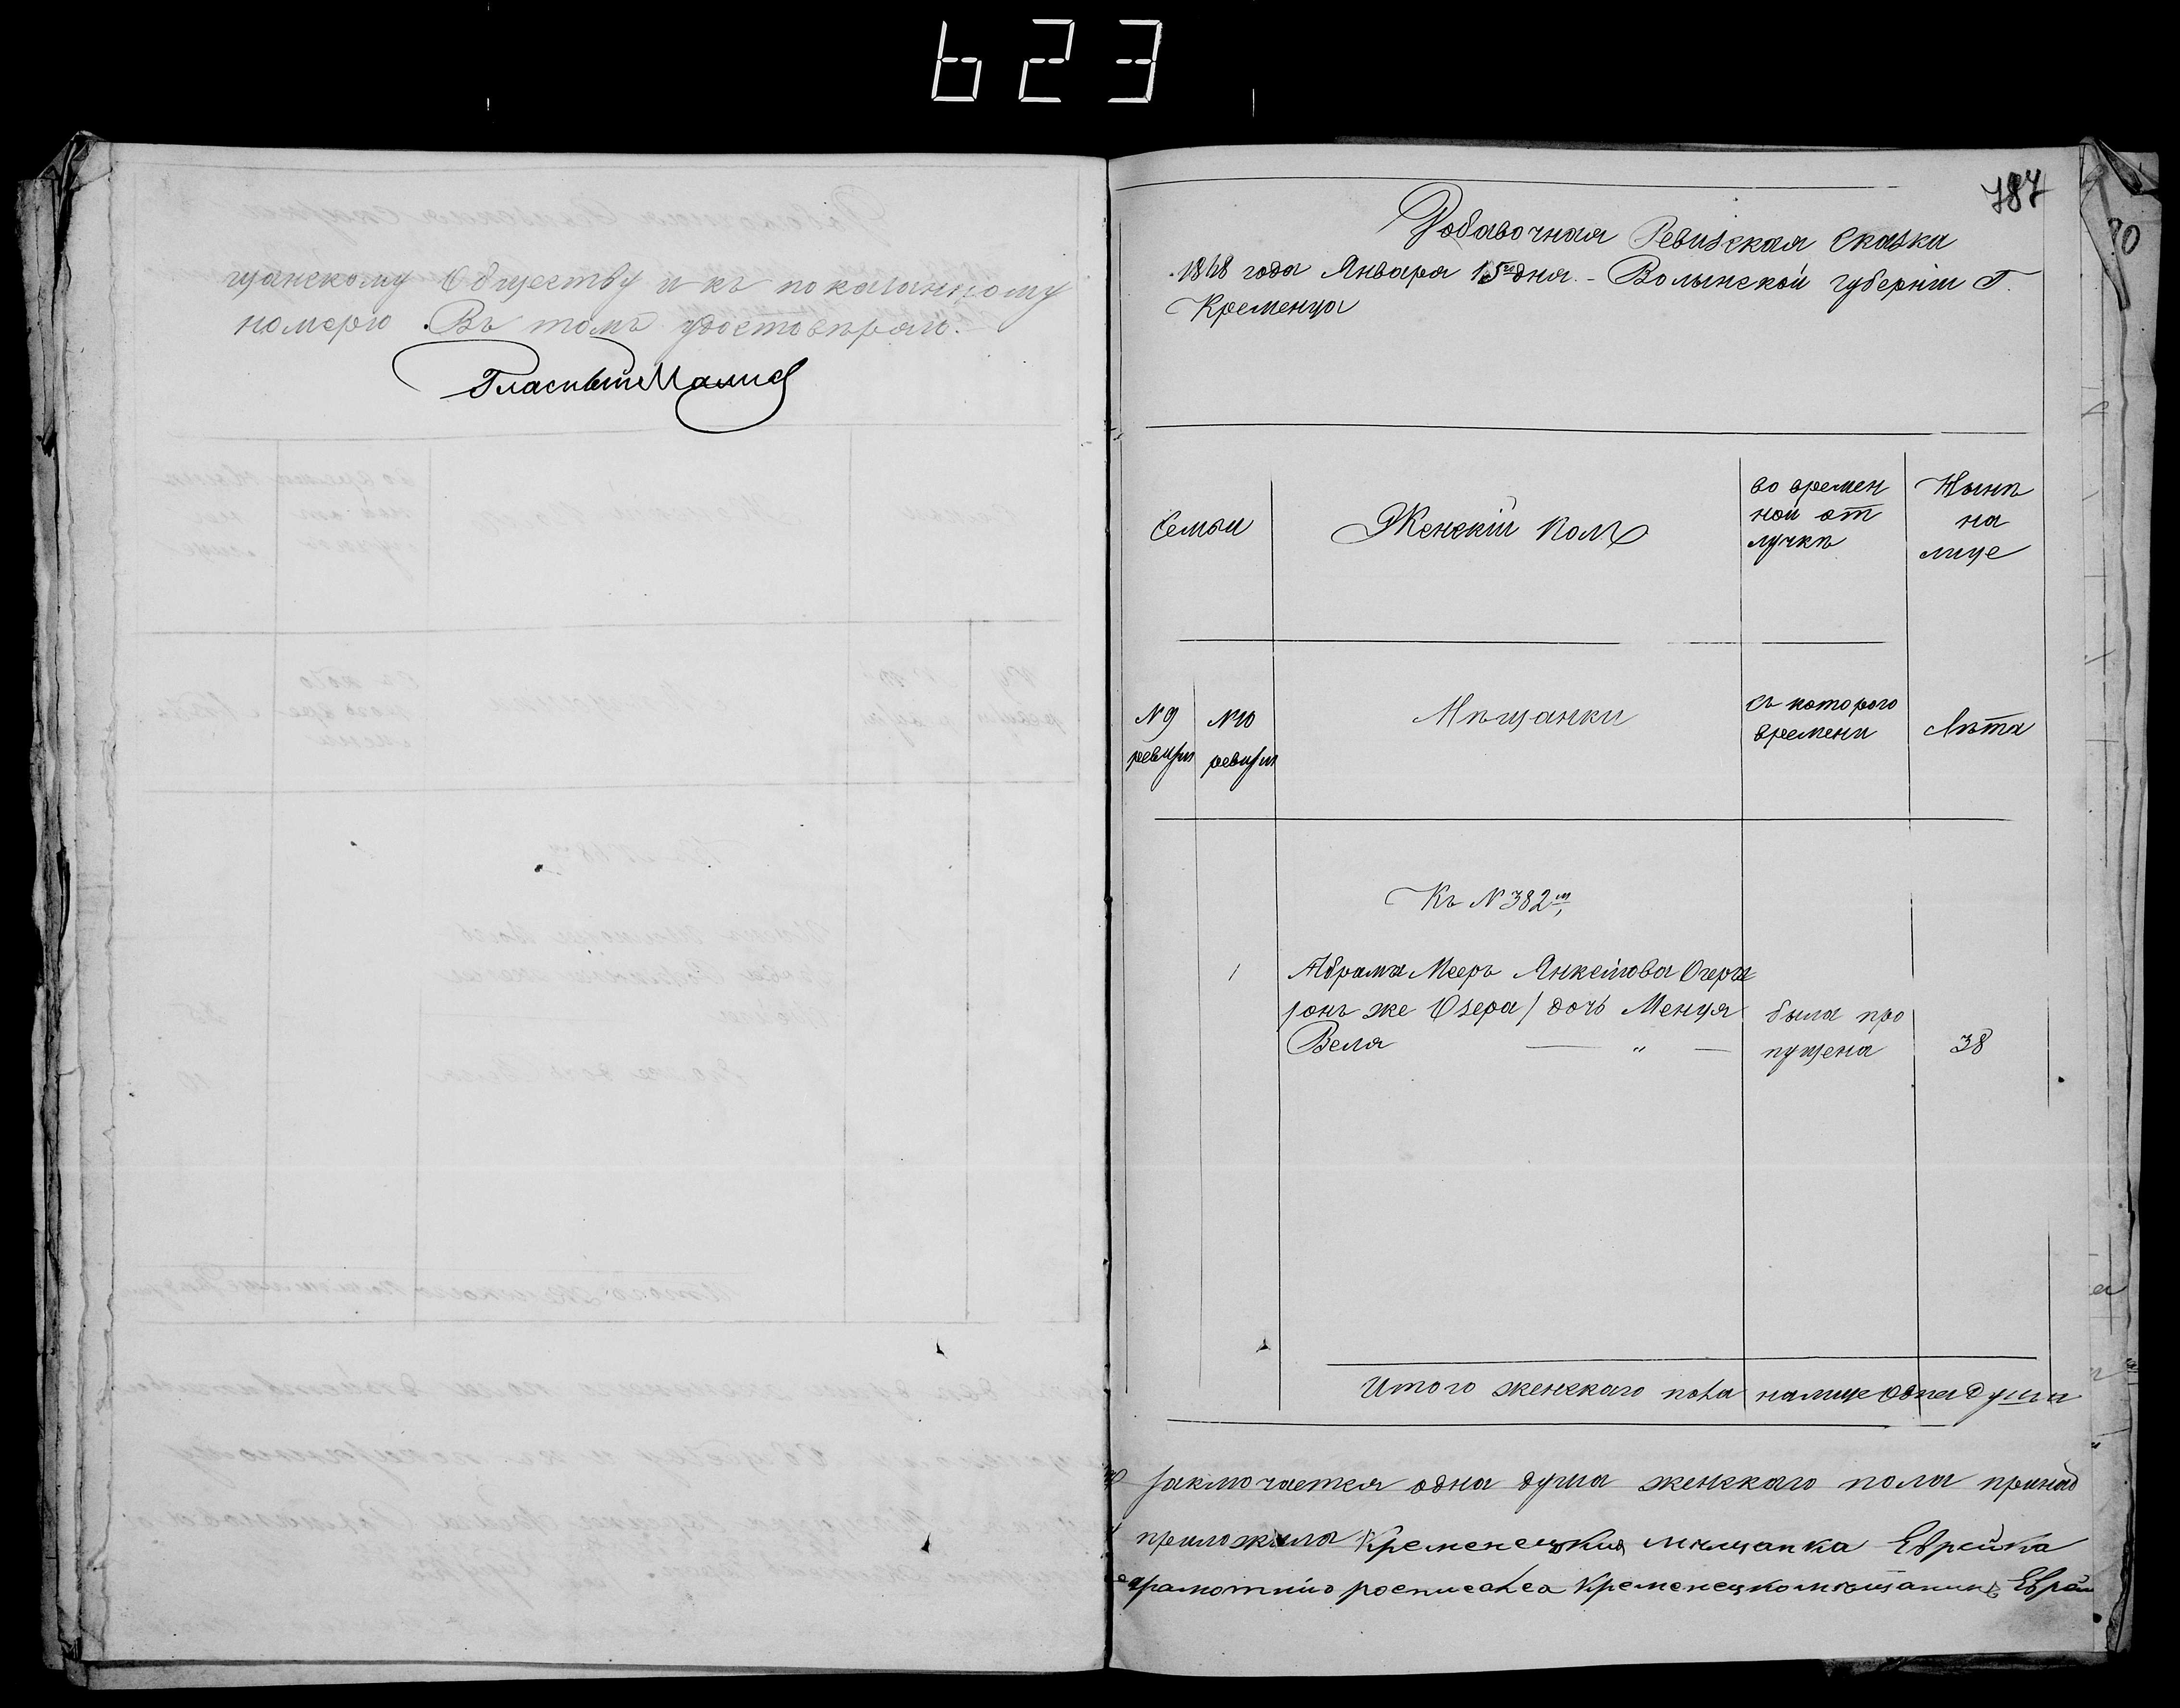 623
щанскому Обществу и къ показанному
номеру. Въ томъ удостовѣряю.
Гласный
787
Добавочная Ревизская Сказка
1868 года Января 15го дня. - Волынской губерніи Г.
Кременца
Семьи
Женскій полъ
во времен
ной от
лучкѣ
Нынѣ
на
лице
№ 9
ревизіи
№ 10
ревизіи
Мѣщанки
съ котораго
времени
Лѣта
Къ № 382му
1 Абрама Мееръ Янкелиова Очера
/онъ же Озера/ дочь Менця была про
Веля — „ — пущена 38
Итого женскаго пола налице одна душа
заключается одна душа женскаго пола принад
приложила Кременецкая мѣщанка Еврейка
грамотній росписался Кременецкій мѣщанинъ Еврей